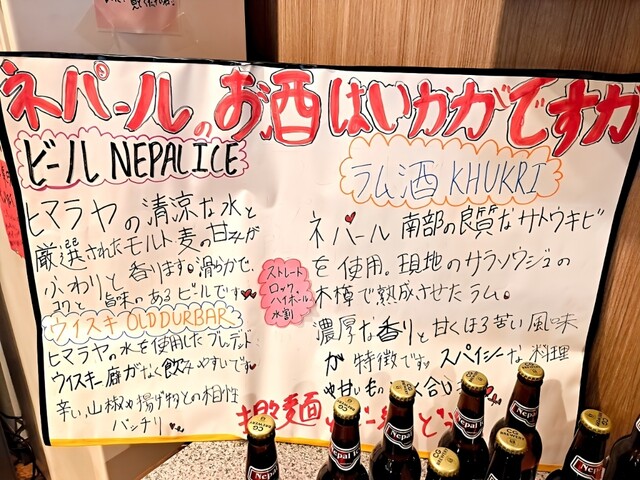 ネパールのお酒はいかがですか
ビール NEPAL ICE
ヒマラヤの清涼な水と
厳選されたモルト麦の甘みが
ふわりと香ります。滑らかで、
コクと旨味のあるビールです
ウイスキ OLD DURBAR
ヒマラヤの水を使用したブレンデッド
ウイスキー癖がなく飲みやすいです
辛い山椒や揚げ物との相性
バンチリ
ストレート
ロック、
ハイボール
水割
ラム酒 KHUKRI
ネパール南部の良質なサトウキビ
を使用。現地のサラソウジュの
木樽で熟成させたラム。
濃厚な香りと甘くほろ苦い風味
が特徴です。スパイシーな料理
や甘いもの
麺
Nepal Ice
Nepal